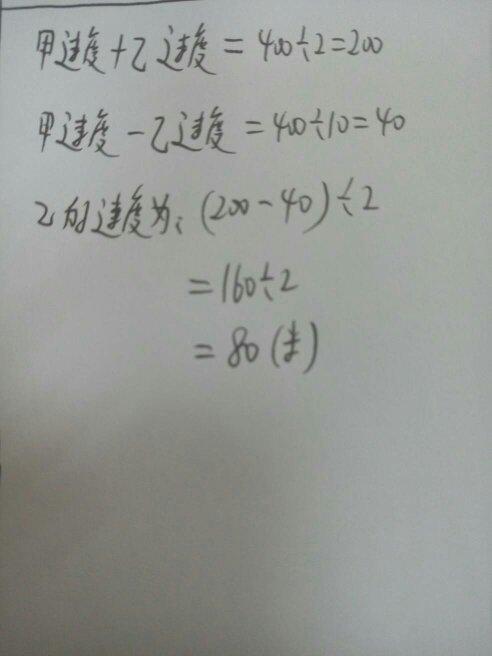 甲速度+乙速度=400÷2=200
甲速度-乙速度=400÷10=40
乙的速度为:(200-40)÷2
=160÷2
=80(米)